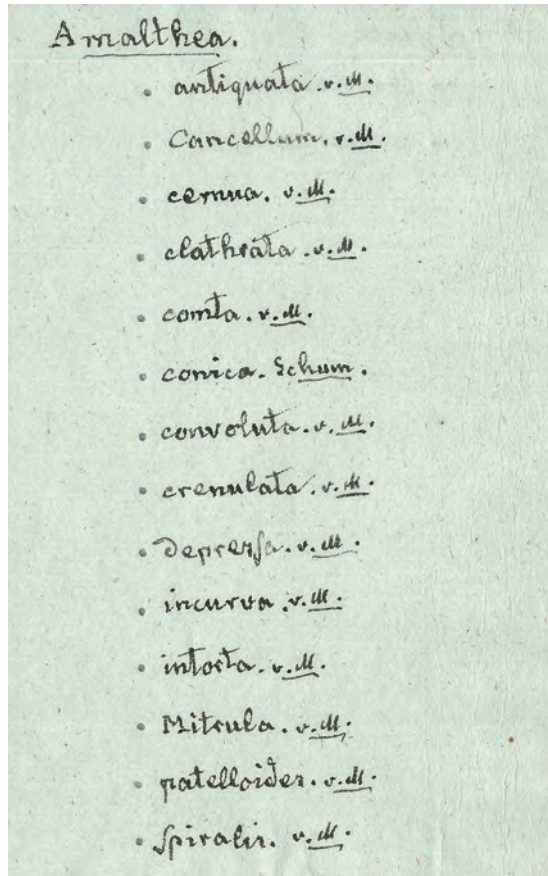 Amalthea.
antiquata. v. M.
Cancellum. v. M.
cernua. v. M.
clathrata. v. M.
comta. v. M.
conica. Schum.
convoluta. v. M.
crenulata. v. M.
depreſsa. v. M.
incurva. v. M.
intorta. v. M.
Mitrula. v. M.
patelloides. v. M.
ſpiralis. v. M.